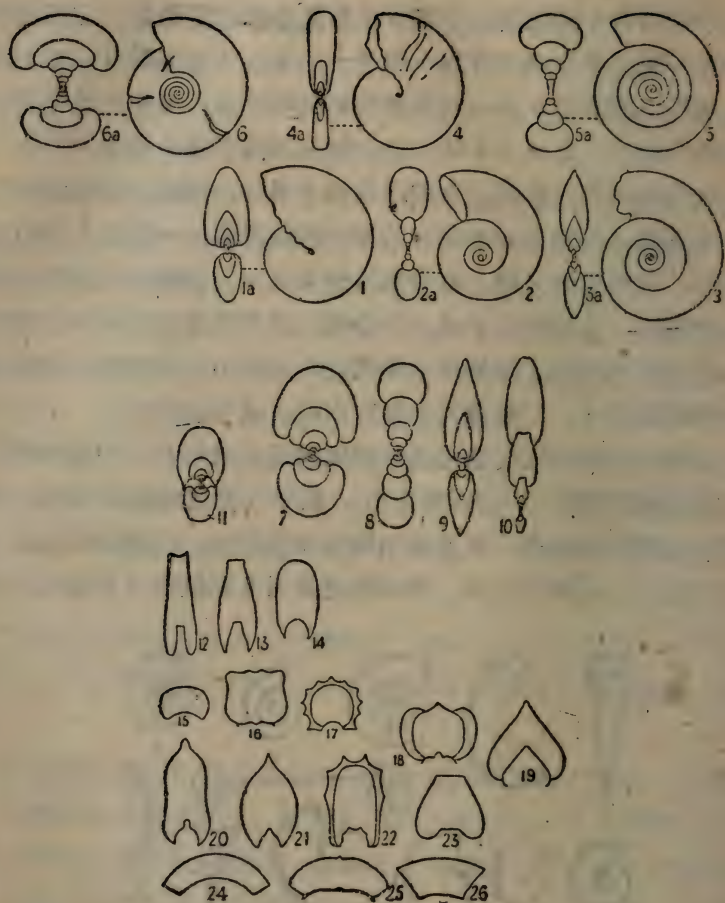 6a 6 4a 4 5a 5
1a 1 2a 2 3a 3
11 7 8 9 10
12 13 14
15 16 17 18 19
20 21 22 23
24 25 26